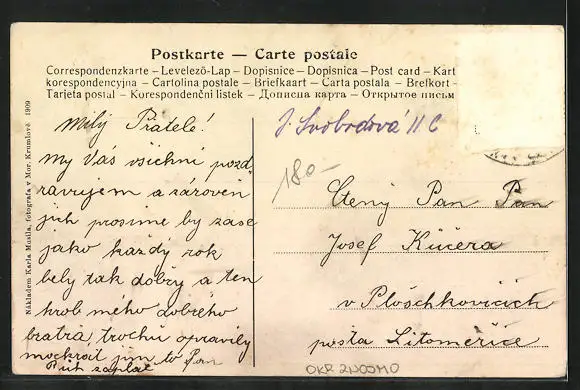 Postkarte — Carte postale
Correspondenzkarte – Levelező-Lap – Dopisnice – Dopisnica – Post card – Kart
korespondencyjna – Cartolina postale – Briefkaart – Carta postala – Brefkort –
Tarjeta postal – Korespondenční listek – Дописна карта – Открытое письм
Nákladem Karla Musila, fotografa v Mor. Krumlově 1909
Milý Přátelé!
My Vás všichni pozd
ravujem a zároveň
jich prosíme by zase
jako každý rok
bely tak dobrý a ten
hrob mého dobrého
bratra trochu opravily
mockrát jim to Pan
Bůh zaplať
J. Svobodová II C
180–
Ctený Pan Pan
Josef Kučera
v Ploschkovicích
pošta Litoměřice
OKR ZNOJMO